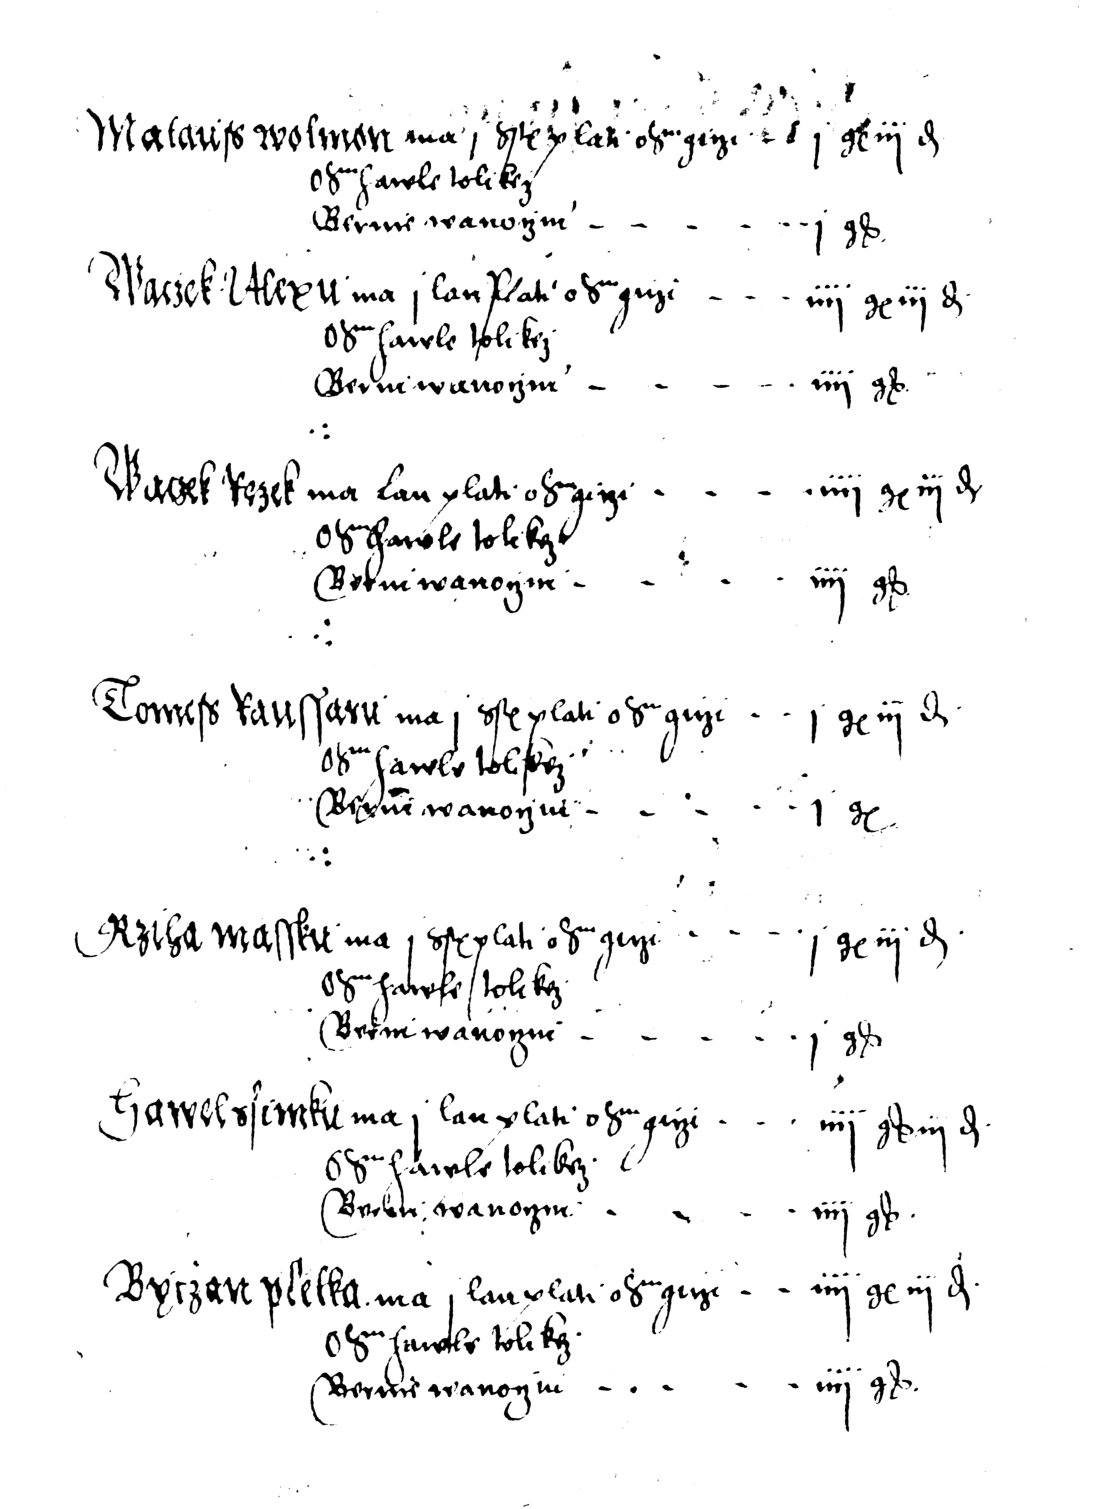 Matauss wolmon ma j plati osm girzi j gr iij d
osm hawle tolikez
Bernie wanoczni j gr
Waczek Alexu ma j lan plati osm girzi iiij gr iij d
osm hawle tolikez
Berni wanoczni iiij gr
Waczek Rezek ma lan plati osm girzi iiij gr iij d
osm hawle tolikez
Berni wanoczni iiij gr
Tomess ma j plati osm girzi j gr iij d
osm hawle tolikez
Bernie wanoczni j gr
Rziha massku ma j plati osm girzi j gr iij d
osm hawle tolikez
Berni wanoczni j gr
Hawel ssimku ma j lan plati osm girzi iiij gr iij d
osm hawle tolikez
Berni wanoczni iiij gr
Byczan pletka ma j lan plati osm girzi iiij gr iij d
osm hawle tolikez
Bernie wanoczni iiij gr